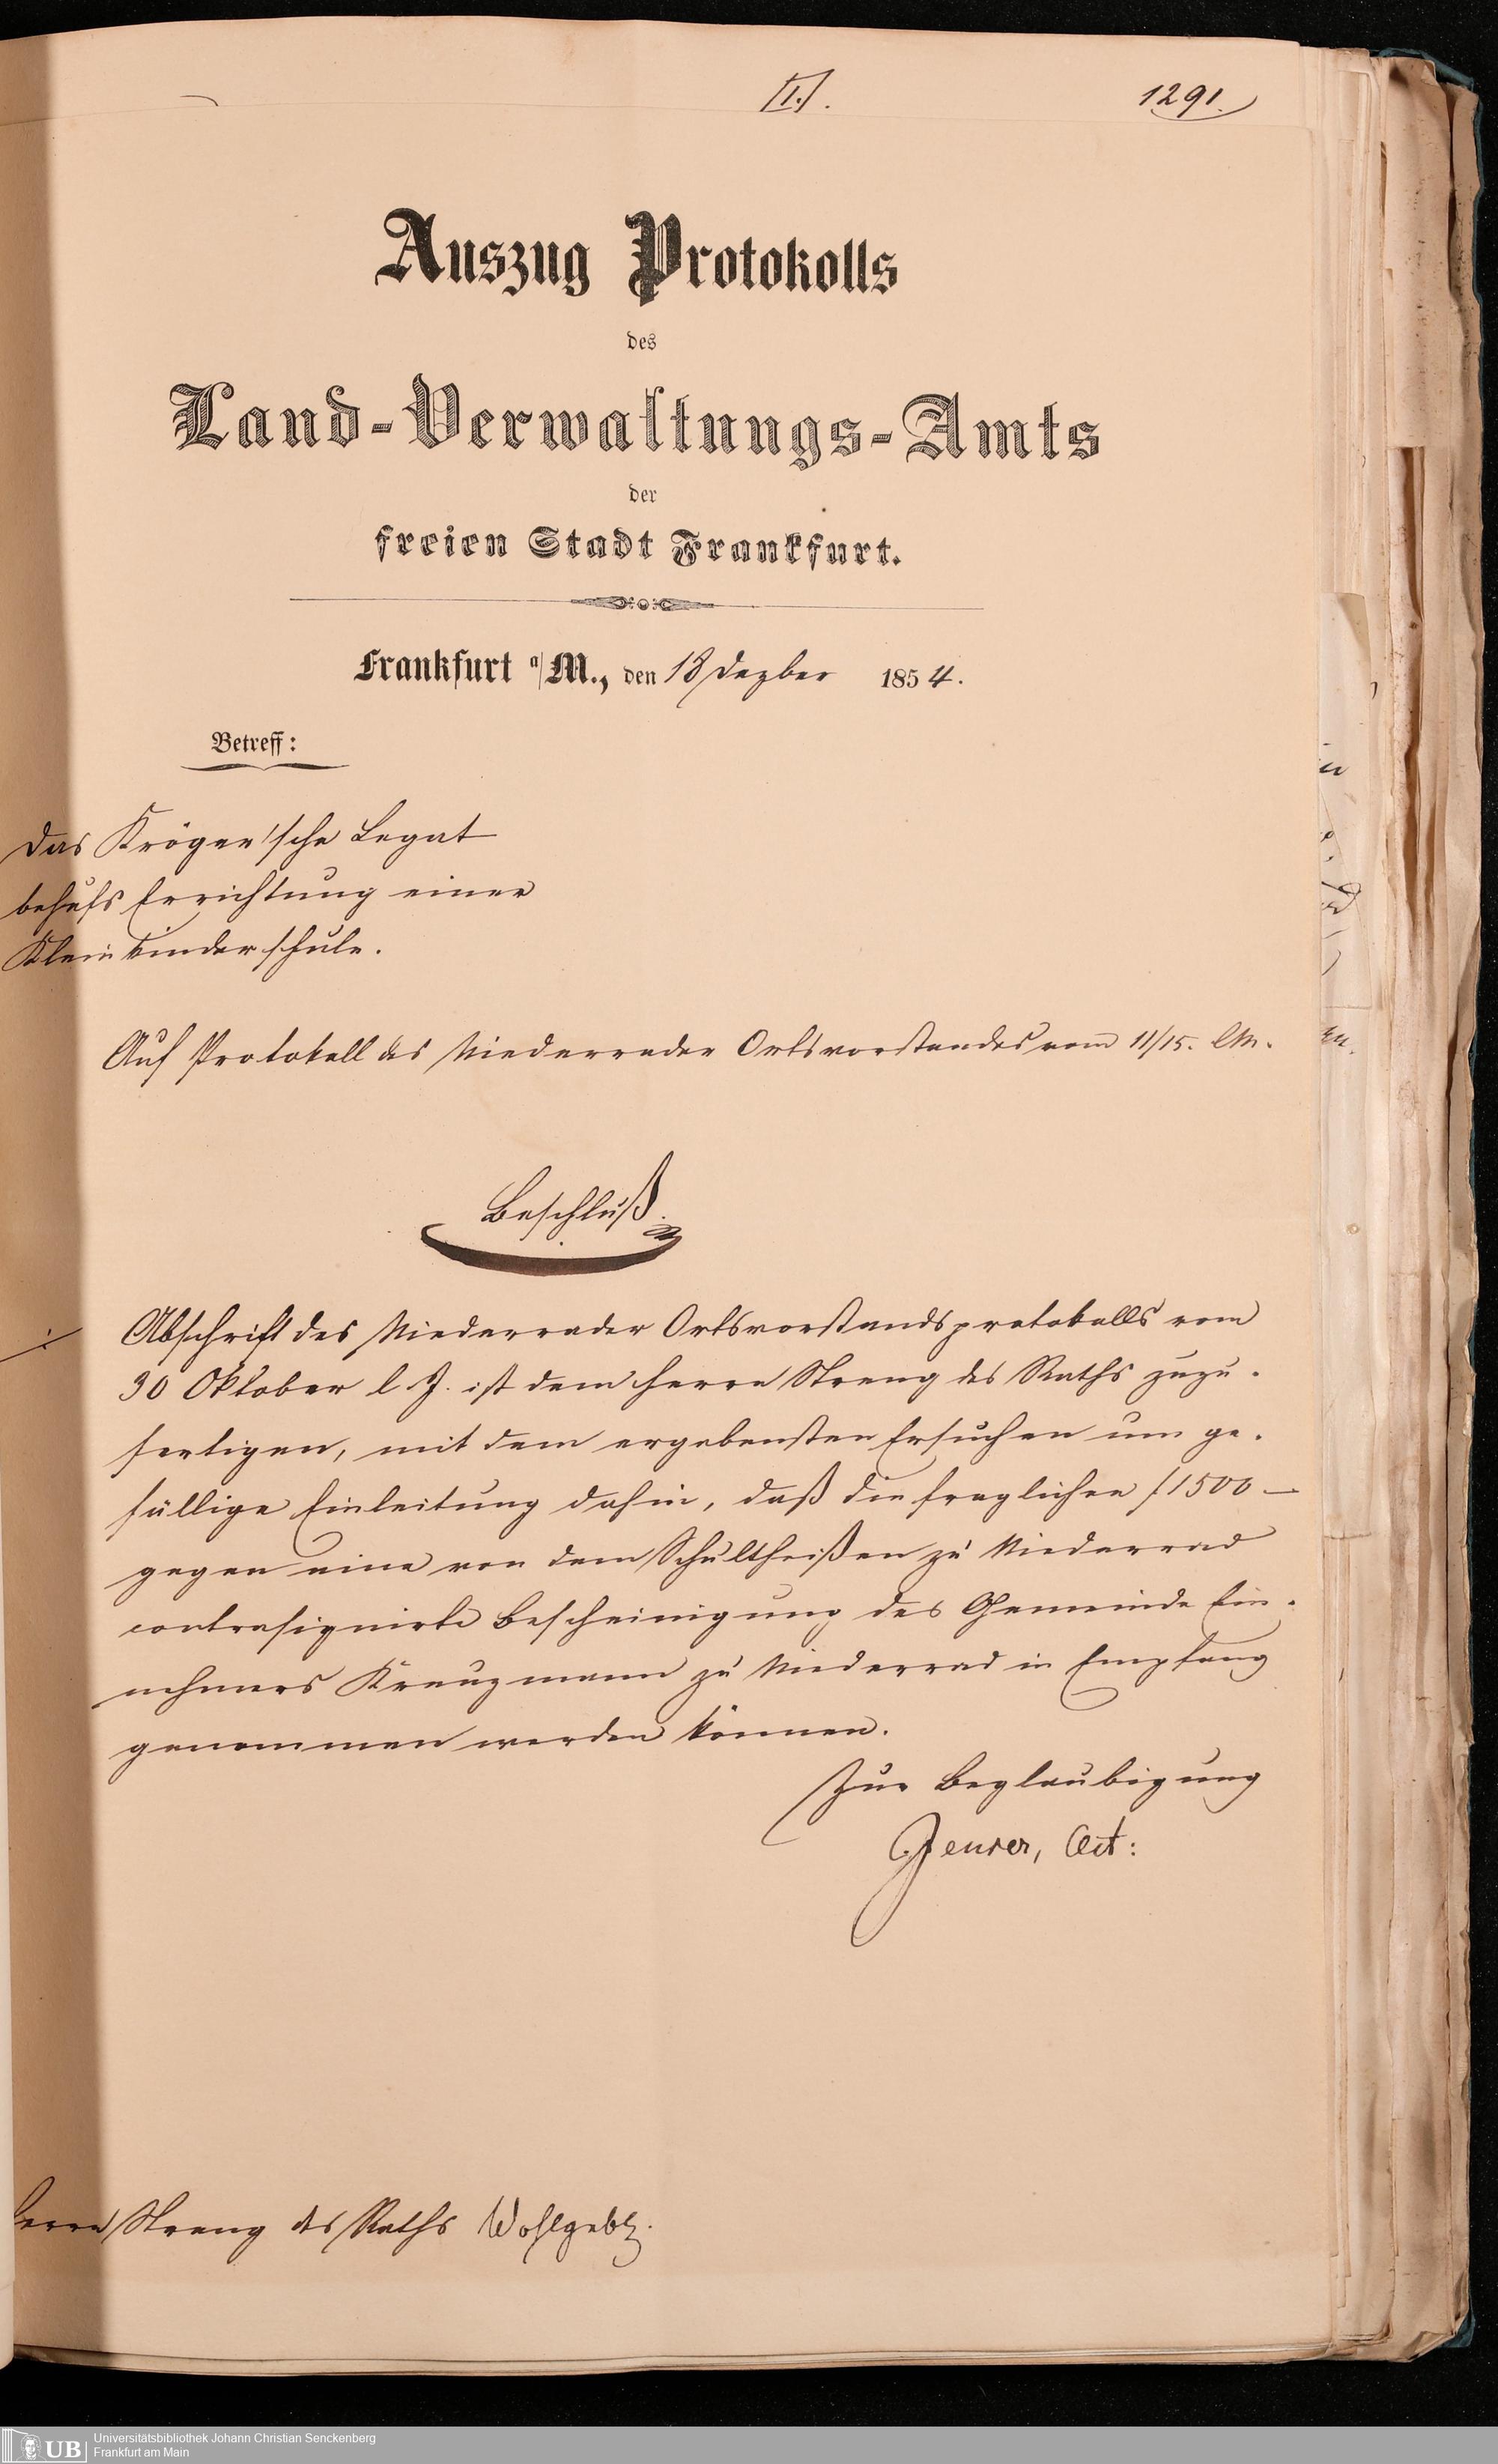 I.
1291.
Auszug Protokolls
des
Land-Verwaltungs-Amts
der
freien Stadt Frankfurt.
Frankfurt a/M., den 18 Dezber 1854.
Betreff:
Das Kröger'sche Legat
behufs Errichtung einer
Kleinkinderschule.
Auf Protokoll des Niederrader Ortsvorstandes vom 11/15. l M.
Beschluß.
Abschrift des Niederrader Ortsvorstandsprotokolls vom
30 Oktober l. J. ist dem Herrn Streng des Raths zuzu-
fertigen, mit dem ergebensten Ersuchen um ge-
fällige Einleitung dahin, daß die fraglichen f 1500 —
gegen eine von dem Schultheißen zu Niederrad
contrasignirte Bescheinigung des Gemeinde Ein-
nehmers Kreuzmann zu Niederrad in Empfang
genommen werden können.
Zur Beglaubigung
Act:
Herrn Streng des Raths Wohlgeb.
UB
Universitätsbibliothek Johann Christian Senckenberg
Frankfurt am Main